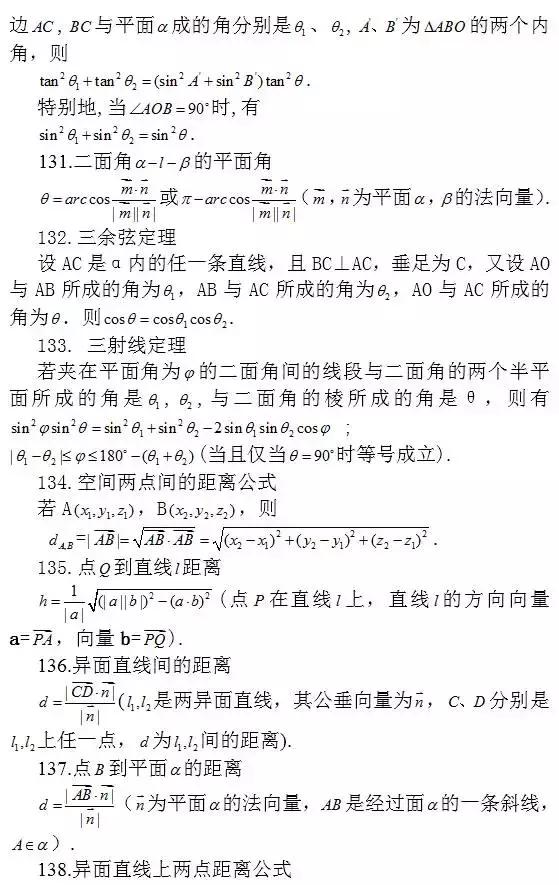 边 AC , BC 与平面 α 成的角分别是 θ₁、θ₂, A'、B' 为 ΔABO 的两个内
角，则
tan²θ₁+tan²θ₂=(sin²A'+sin²B')tan²θ.
特别地,当∠AOB=90°时,有
sin²θ₁+sin²θ₂=sin²θ.
131.二面角α-l-β的平面角
θ=arc cos (m⃗·n⃗)/(|m⃗||n⃗|) 或 π-arc cos (m⃗·n⃗)/(|m⃗||n⃗|) (m⃗, n⃗为平面α, β的法向量).
132.三余弦定理
设 AC 是 α 内的任一条直线，且 BC⊥AC，垂足为 C，又设 AO
与 AB 所成的角为θ₁，AB 与 AC 所成的角为θ₂，AO 与 AC 所成的
角为θ．则cosθ=cosθ₁cosθ₂.
133. 三射线定理
若夹在平面角为φ的二面角间的线段与二面角的两个半平
面所成的角是θ₁, θ₂, 与二面角的棱所成的角是 θ，则有
sin²φsin²θ=sin²θ₁+sin²θ₂-2sinθ₁sinθ₂cosφ ;
|θ₁-θ₂|≤φ≤180°-(θ₁+θ₂)(当且仅当θ=90°时等号成立).
134.空间两点间的距离公式
若 A(x₁,y₁,z₁)，B(x₂,y₂,z₂)，则
d_{A,B}=|AB⃗|=√(AB⃗·AB⃗)=√((x₂-x₁)²+(y₂-y₁)²+(z₂-z₁)²).
135.点Q到直线l距离
h=1/|a| √((|a||b|)²-(a·b)²) (点 P 在直线 l 上，直线 l 的方向向量
a=PA⃗，向量 b=PQ⃗).
136.异面直线间的距离
d=|CD⃗·n⃗|/|n⃗| (l₁,l₂是两异面直线，其公垂向量为n⃗，C、D 分别是
l₁,l₂上任一点，d为l₁,l₂间的距离).
137.点B到平面α的距离
d=|AB⃗·n⃗|/|n⃗| （n⃗为平面α的法向量，AB是经过面α的一条斜线，
A∈α）.
138.异面直线上两点距离公式